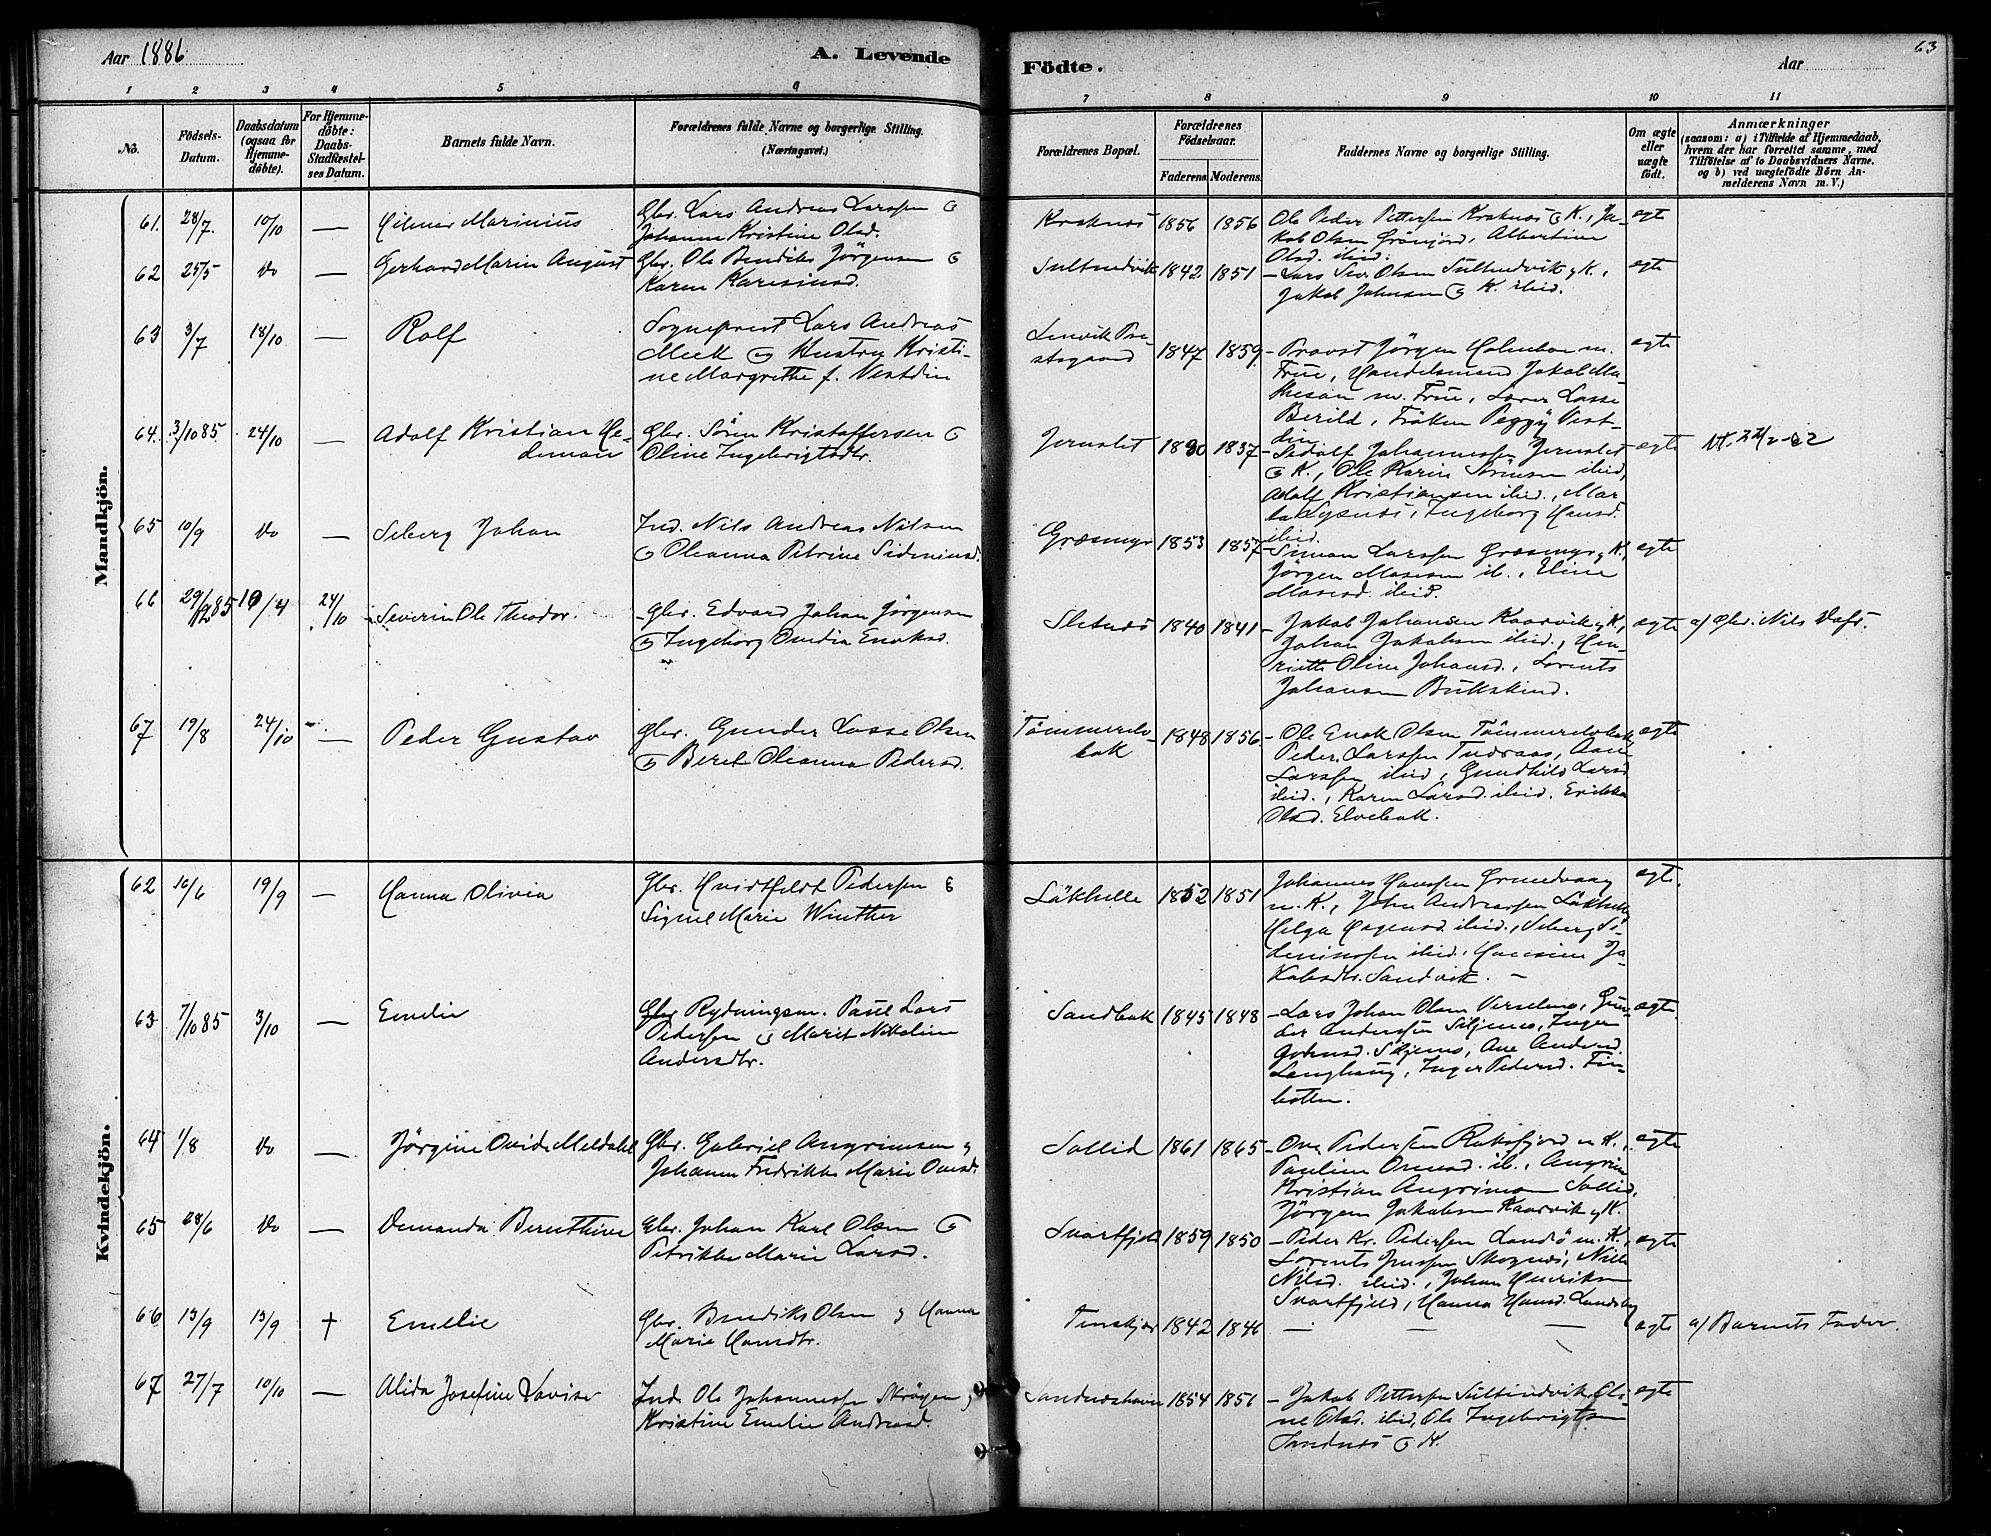 Aar 1886
A. Levende
Födte.
Aar
63
1 2 3 4 5 6 7 8 9 10 11
No.
Födsels-
Datum.
Daabsdatum
(ogsaa for
Hjemme-
döbte).
For Hjemme-
döbte:
Daabs-
Stadfæstel-
ses Datum.
Barnets fulde Navn.
Forældrenes fulde Navne og borgerlige Stilling.
(Næringsvei.)
Forældrenes Bopæl.
Forældrenes
Födselsaar.
Faderens. Moderens.
Faddernes Navne og borgerlige Stilling.
Om ægte
eller
uægte
født.
Anmærkninger
(saasom: a) i Tilfælde af Hjemmedaab,
hvem der har forrettet samme, med
Tilföielse af to Daabsvidners Navne,
og b) ved uægtefödte Börn An-
melderens Navn m. V.)
Mandkjön.
61. 28/7. 10/10 — Hilmar Marinius
Gbr. Lars Andreas Larssen &
Johanna Kristine Olsd.
Kraknæs 1856 1856
Ole Peder Pettersen Kraknæs & K., Ja-
kob Olsen Grönjord, Albertine
Olsd. ibid.
egte
62 25/5 do — Gerhard Marin August
Gbr. Ole Bendiks Jörgensen &
Karen Karesiusd.
Sultindvik 1842 1851
— Lars Siv. Olsen Sultindvik & K.,
Jakob Johnsen & K. ibid.
egte
63 3/7 18/10 — Rolf
Sogneprest Lars Andreas
Meek og Hustru Kristi-
ne Margrethe f. Vestdin
Lenvik Pre-
stegaard 1847 1859
— Provst Jörgen Holmboe m.
Frue, Handelsmand Jakob Ma-
thesen m. Frue, Lærer Lasse
Berild, Fröken Peggy Vest-
din
egte
64. 3/10 85 24/10 — Adolf Kristian He-
deman
Gbr. Sören Kristoffersen &
Oline Ingebrigtsdtr.
Jernslet 1830 1837
— Sedolf Johannessen Jernslet
& K., Ole Karin Sörensen ibid,
Adolf Kristiansen ibid., Mar-
ta Lysnæs, Ingeborg Hansd.
ibid.
egte
65 10/9 do — Seberg Johan
Ind. Nils Andreas Nilsen
& Oleanna Petrine Sideniusd.
Græsmyr 1853 1857
— Simon Larssen Græsmyr & K.,
Jörgen Mosesen ib., Eline
Mosesd. ibid.
egte
66 29/12 85 10/4 24/10 Severin Ole Theodor.
— Gbr. Edvard Johan Jörgensen
& Ingeborg Ovidia Enoksd.
Sletnæs 1840 1841
— Jakob Johansen Kaarvik & K.,
Johan Jakobsen ibid., Hen-
riette Oline Johansd., Lorents
Johansen Bukskind.
egte a/ Gbr. Nils
67 19/8 24/10 — Peder Gustav
Gbr. Gunder Lasse Olsen
& Beret Oleanna Pedersd.
Tömmerelv-
bak 1848 1856
— Ole Enok Olsen Tömmerelvbak,
Peder Larssen Tudraas, Ane
Larssen ibid, Gundhild Larsd.
ibid., Karen Larsd. ibid. Erikka
Olsd. Elvebak.
egte
Kvindekjön.
62 16/6 19/9 — Hanna Olivia
Gbr. Hvidtfeldt Pedersen &
Signe Marie Winther
Låkhelle 1852 1851
Johannes Hanssen Grundvaag
m. K., John Andreassen Låkhelle,
Helga Hagensd. ibid., Seberg Si-
deniussen ibid., Hansine Ja-
kobsdtr. Sandvik. —
egte.
63 7/10 85 3/10 — Emelie
Gbr Rydningsm. Paul Lars
Pedersen & Marit Nikoline
Andersdtr.
Sandbak 1845 1848
— Lars Johan Olsen Verselmo, Gun-
der Anderssen Siljemo, Inger
Johnsd. Siljemo, Ane Andersd.
Langhaug, Inger Pedersd. Fin-
botten.
egte.
64 1/8 do — Jörgine Ovide Meldahl
Gbr. Gabriel Angrimsen &
Johanna Fredrikke Marie Ovesd.
Sollid 1861 1865
— Ove Pedersen Raksfjord m. K.,
Pauline Ovesd. ib., Angrim
Kristian Angrimsen Sollid,
Jörgen Jakobsen Kaarvik & K.
egte
65 28/6 do — Demanda Bernthine
Gbr. Johan Karl Olsen &
Petrikke Marie Larsd.
Svartfjeld 1859 1850
— Peder Kr. Pedersen Landö m. K.,
Lorents Jenssen Skognæs, Nille
Nilsd. ibid., Johan Henriksen
Svartfjeld, Hanna Hansd. Landsbg
egte
66 13/9 13/9 † Emelie
Gbr. Bendiks Olsen & Hanna
Marie Hansdtr.
Finskjær 1842 1846 — — —
egte a/ Barnets Fader.
67 27/7 10/10 — Alida Josefine Lovise
Ind. Ole Johannessen Skrögen &
Kristine Emelie Andreasd.
Sandneshavn 1854 1856
— Jakob Pettersen Sultindvik, Oli-
ne Olsd. ibid, Ole Ingebrigtsen
Sandnæs & K.
egte